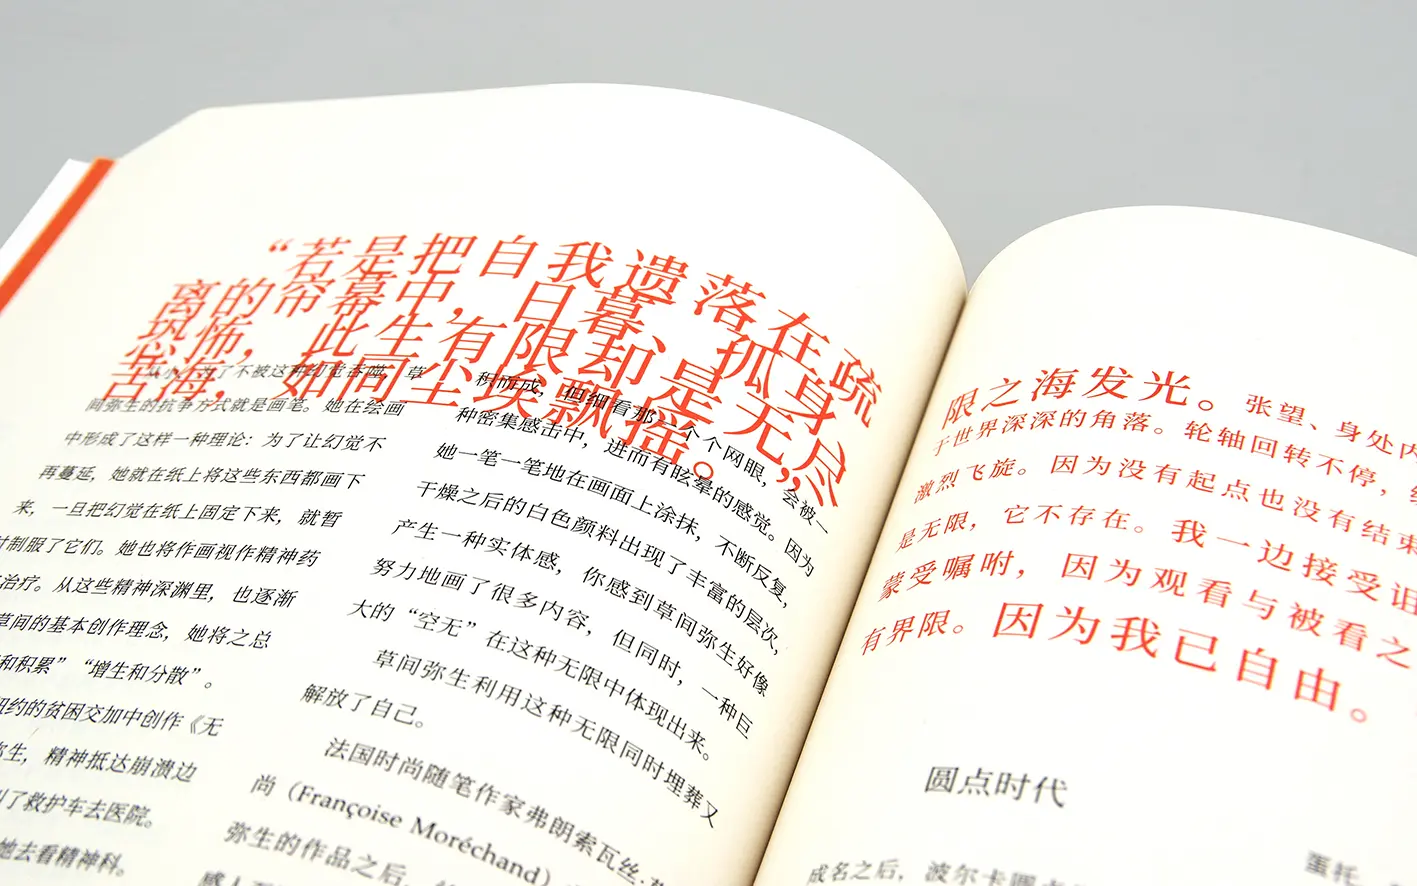 “若是把自我遗落在疏
离的帘幕中，日暮、孤身
恐怖，此生有限却是无尽，
苦海，如同尘埃飘摇。
从小，为了不被这种幻觉吞噬，草
间弥生的抗争方式就是画笔。她在绘画
中形成了这样一种理论：为了让幻觉不
再蔓延，她就在纸上将这些东西都画下
来，一旦把幻觉在纸上固定下来，就暂
时制服了它们。她也将作画视作精神药
治疗。从这些精神深渊里，也逐渐
草间的基本创作理念，她将之总
和积累”“增生和分散”。
纽约的贫困交加中创作《无
弥生，精神抵达崩溃边
叫了救护车去医院。
她去看精神科。
积而成，但细看那一个个网眼，会被一
种密集感击中，进而有眩晕的感觉。因为
她一笔一笔地在画面上涂抹，不断反复，
干燥之后的白色颜料出现了丰富的层次，
产生一种实体感，你感到草间弥生好像
努力地画了很多内容，但同时，一种巨
大的“空无”在这种无限中体现出来。
草间弥生利用这种无限同时埋葬又
解放了自己。
法国时尚随笔作家弗朗索瓦丝·莫
尚（Françoise Moréchand）
弥生的作品之后，
感人
限之海发光。张望、身处内
于世界深深的角落。轮轴回转不停，
激烈飞旋。因为没有起点也没有结束
是无限，它不存在。我一边接受诅
蒙受嘱咐，因为观看与被看之
有界限。因为我已自由。
圆点时代
成名之后，波尔卡圆点
蛋托，